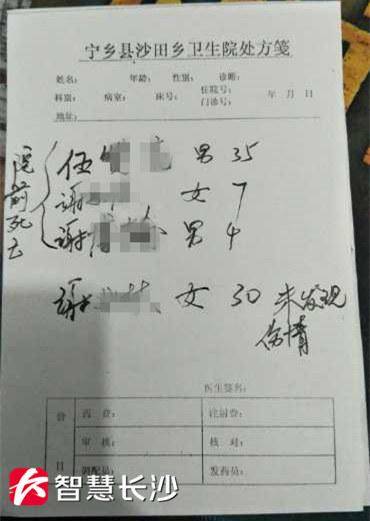 宁乡县沙田乡卫生院处方笺
姓名: 年龄: 性别: 诊断:
科别: 病室: 床号: 住院号: 门诊号: 年 月 日
地址:
院前死亡
伍 男 35
谢 女 7
谢 男 4
谢 女 30 未发现
伤情
医生签名:
价 药费: 注射费:
审核: 核对:
目 调配员: 发药员:
智慧长沙